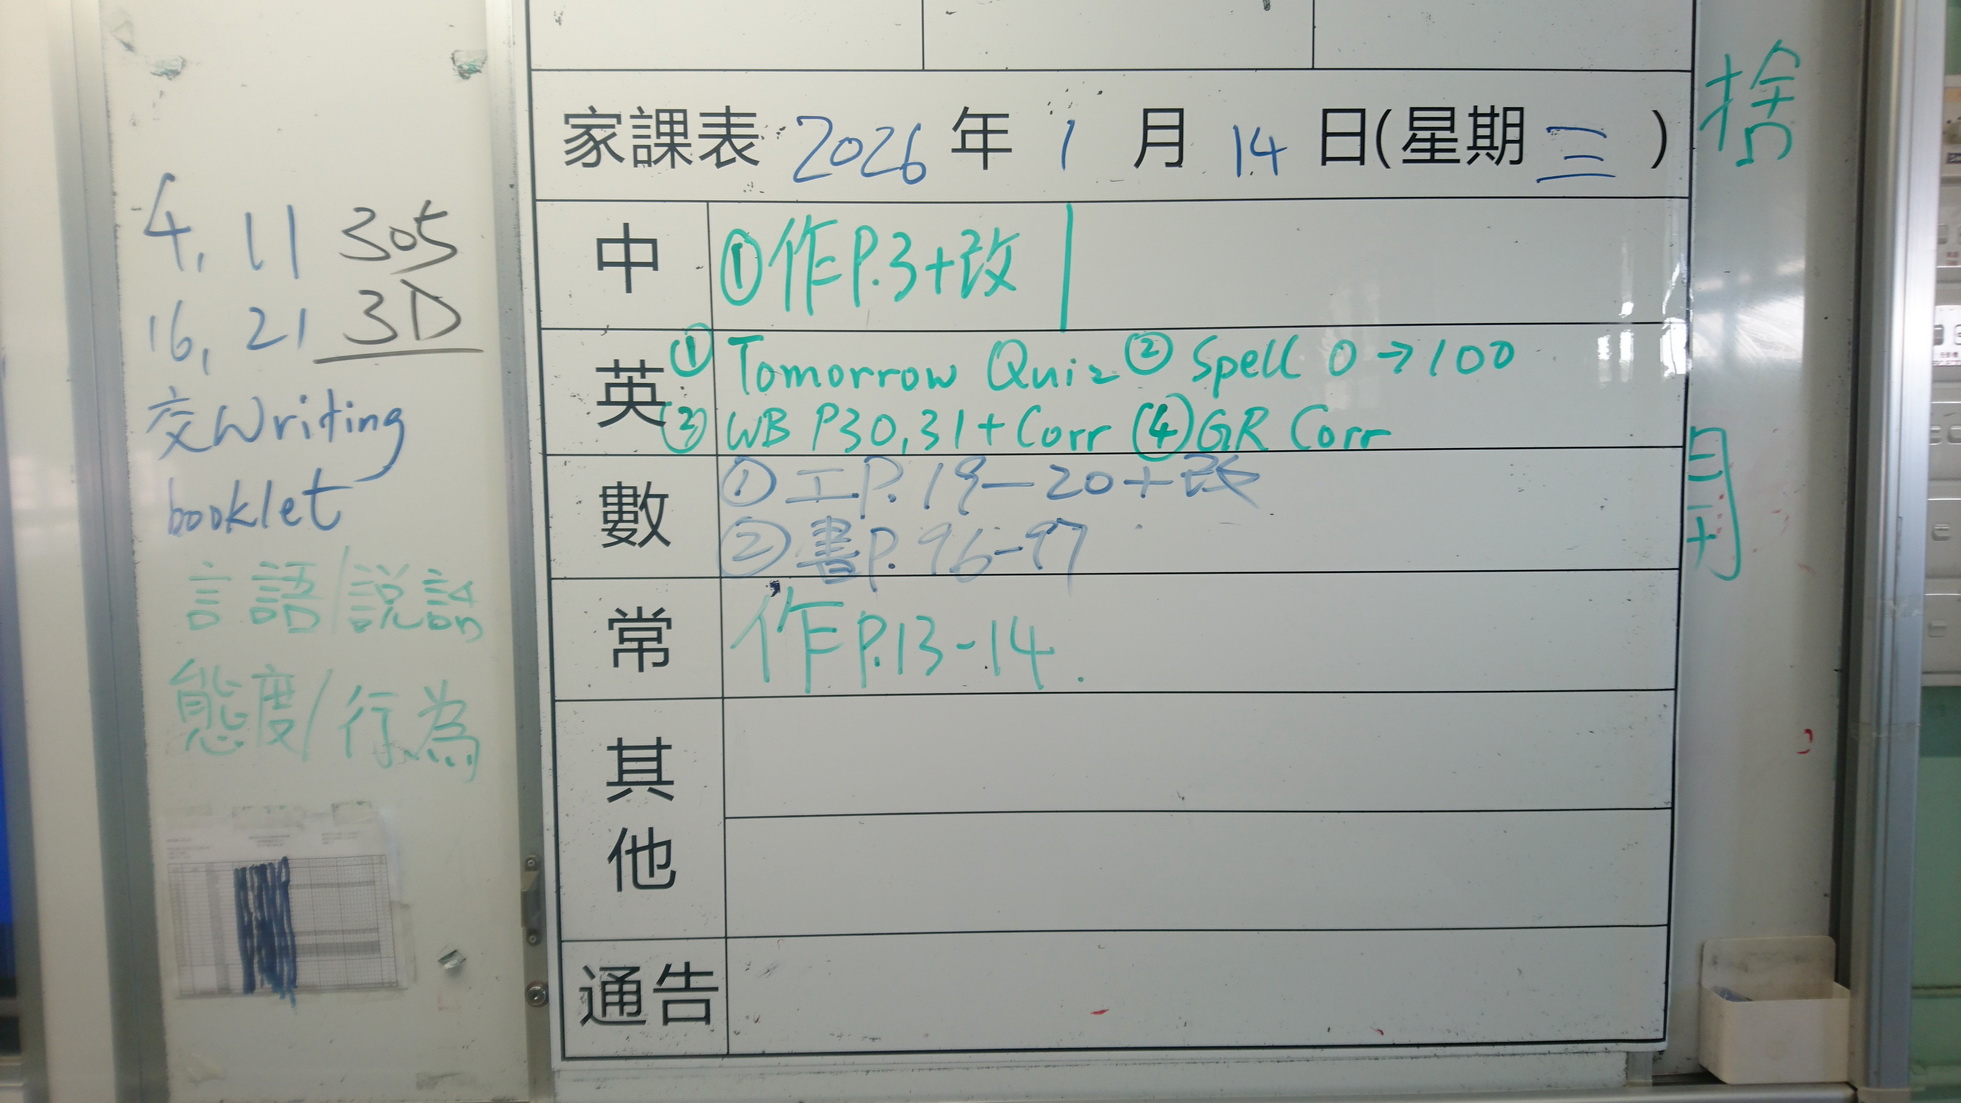 家課表 2026 年 1 月 14 日(星期 三 )
中 ①作P.3+改
英 ① Tomorrow Quiz ② Spell 0→100
③ WB P30,31+Corr ④GR Corr
數 ①工P.19-20+改
②書P.96-97
常 作P.13-14.
其他
通告
4, 11 305
16, 21 3D
交Writing
booklet
言語/説話
態度/行為
捨